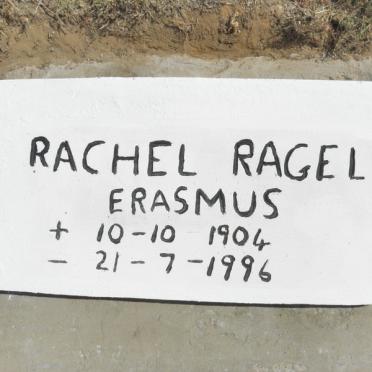 RACHEL RAGEL
ERASMUS
+ 10-10 1904
- 21-7-1996